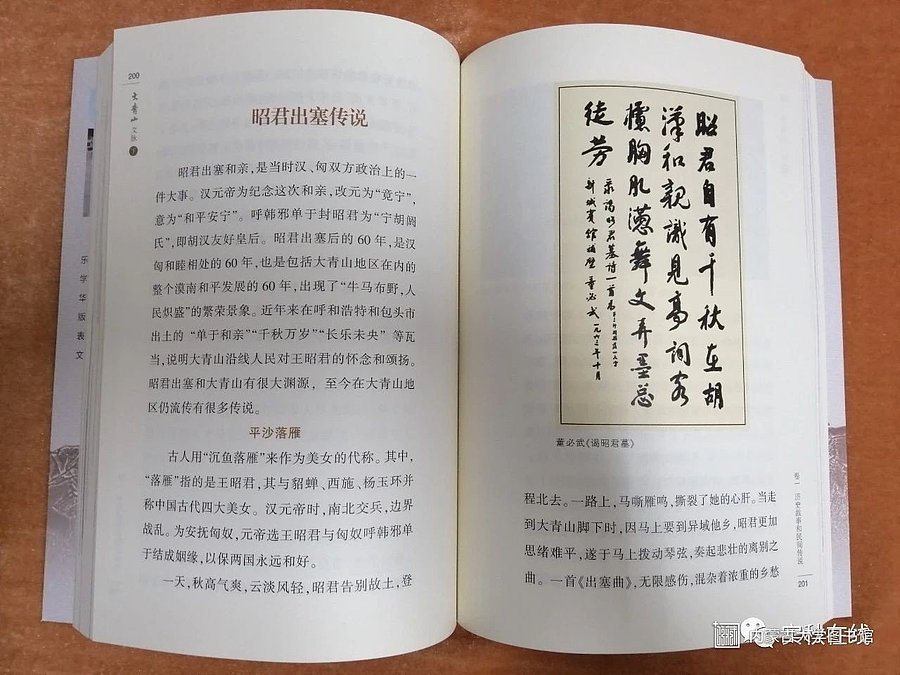 200
大青山文脉 下
昭君出塞传说
昭君出塞和亲，是当时汉、匈双方政治上的一
件大事。汉元帝为纪念这次和亲，改元为“竟宁”，
意为“和平安宁”。呼韩邪单于封昭君为“宁胡阏
氏”，即胡汉友好皇后。昭君出塞后的 60 年，是汉
匈和睦相处的 60 年，也是包括大青山地区在内的
整个漠南和平发展的 60 年，出现了“牛马布野，人
民炽盛”的繁荣景象。近年来在呼和浩特和包头市
出土的 “单于和亲”“千秋万岁”“长乐未央” 等瓦
当，说明大青山沿线人民对王昭君的怀念和颂扬。
昭君出塞和大青山有很大渊源， 至今在大青山地
区仍流传有很多传说。
平沙落雁
古人用“沉鱼落雁”来作为美女的代称。其中，
“落雁”指的是王昭君，其与貂蝉、西施、杨玉环并
称中国古代四大美女。汉元帝时，南北交兵，边界
战乱。为安抚匈奴，元帝选王昭君与匈奴呼韩邪单
于结成姻缘，以保两国永远和好。
一天，秋高气爽，云淡风轻，昭君告别故土，登
昭君自有千秋在胡
汉和亲识见高词客
各摅胸臆懑舞文弄墨总
徒劳
董必武《谒昭君墓》
程北去。一路上，马嘶雁鸣，撕裂了她的心肝。当走
到大青山脚下时，因马上要到异域他乡，昭君更加
思绪难平，遂于马上拨动琴弦，奏起悲壮的离别之
曲。一首《出塞曲》，无限感伤，混杂着浓重的乡愁
卷一 历史故事和民间传说
201